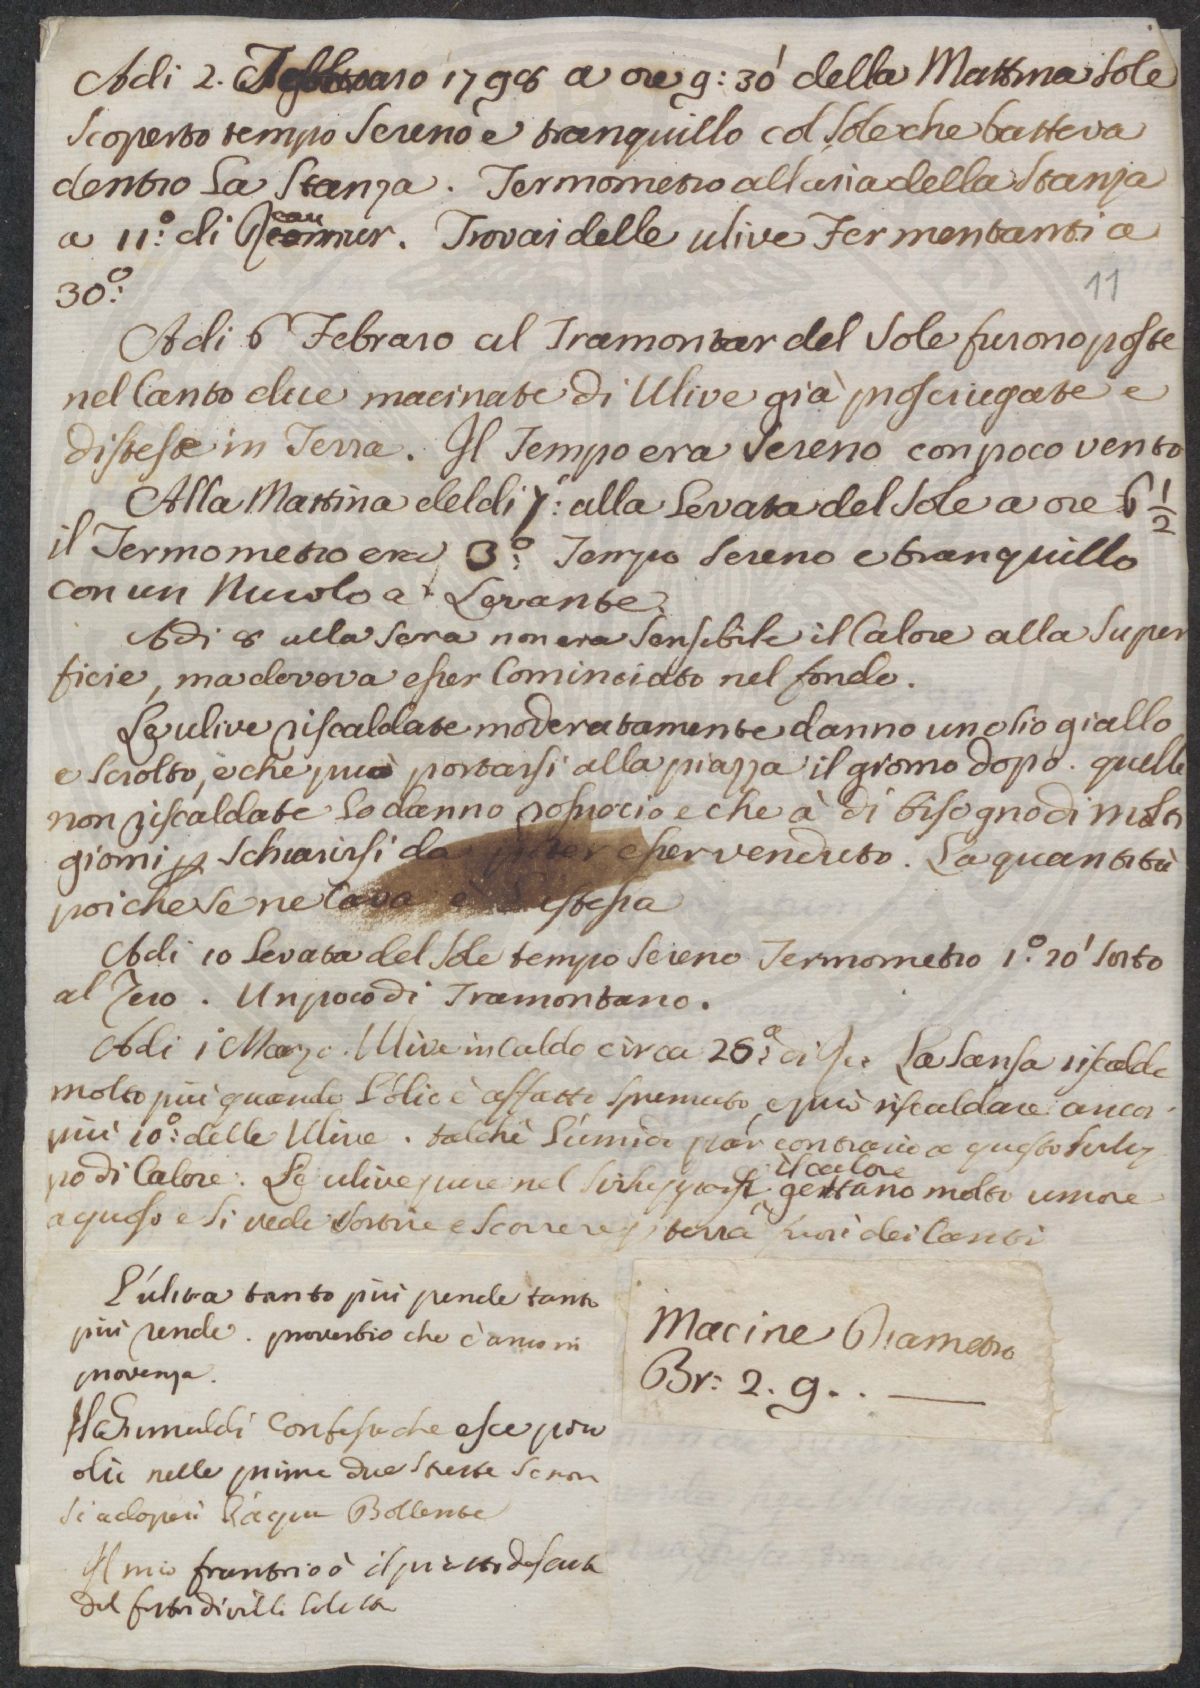 Adi 2. Febbraro 1798 a ore 9: 30' della Mattina Sole
scoperto tempo sereno e tranquillo col Sole che batteva
dentro la Stanza. Termometro all aria della Stanza
a 11:° di Reaumur. Trovai delle ulive Fermentanti a
30:°
11
Adi 6 Febraro al Tramontar del Sole furono poste
nel Canto due macinate di Ulive già prosciugate e
distese in Terra. Il Tempo era Sereno con poco vento
Alla Mattina del di 7: alla Levata del Sole a ore 6 1/2
il Termometro era 3:° Tempo Sereno e tranquillo
con un Nuvolo a Levante.
Adi 8 alla Sera non era Sensibile il Calore alla Super
ficie, ma doveva esser Cominciato nel fondo.
Le ulive riscaldate moderatamente danno un olio giallo
e Sciolto, e che può portarsi alla piazza il giorno dopo. quelle
non riscaldate lo danno e che à di bisogno di molti
giorni p Schiarirsi da poter esser venduto. La quantità
poi che se ne Cava è l'istessa
Adi 10 Levata del Sole tempo Sereno Termometro 1.° 20' Sotto
al Zero. Un poco di Tramontano.
Adi 1 Marzo. Ulive in caldo circa 26:° La Sansa riscalda
molto più quando l'olio è affatto spremuto, e può riscaldare ancor
più 10:° delle Ulive. talchè l'umido par contrario a questo svilup
po di Calore. Le ulive pure nel svilupparsi il calore gettano molto umore
aquoso e si vede sortire e scorrere p terra fuori dei Canti
L'uliva tanto più pende tanto
più rende. proverbio che è anco in
provenza.
Il Grimaldi Confessa che esce poco
olio nelle prime due Strette se non
si adopri l'aqua Bollente
Il mio frantoio à il piatto
del
Macine Diametro
Br: 2. 9. . —